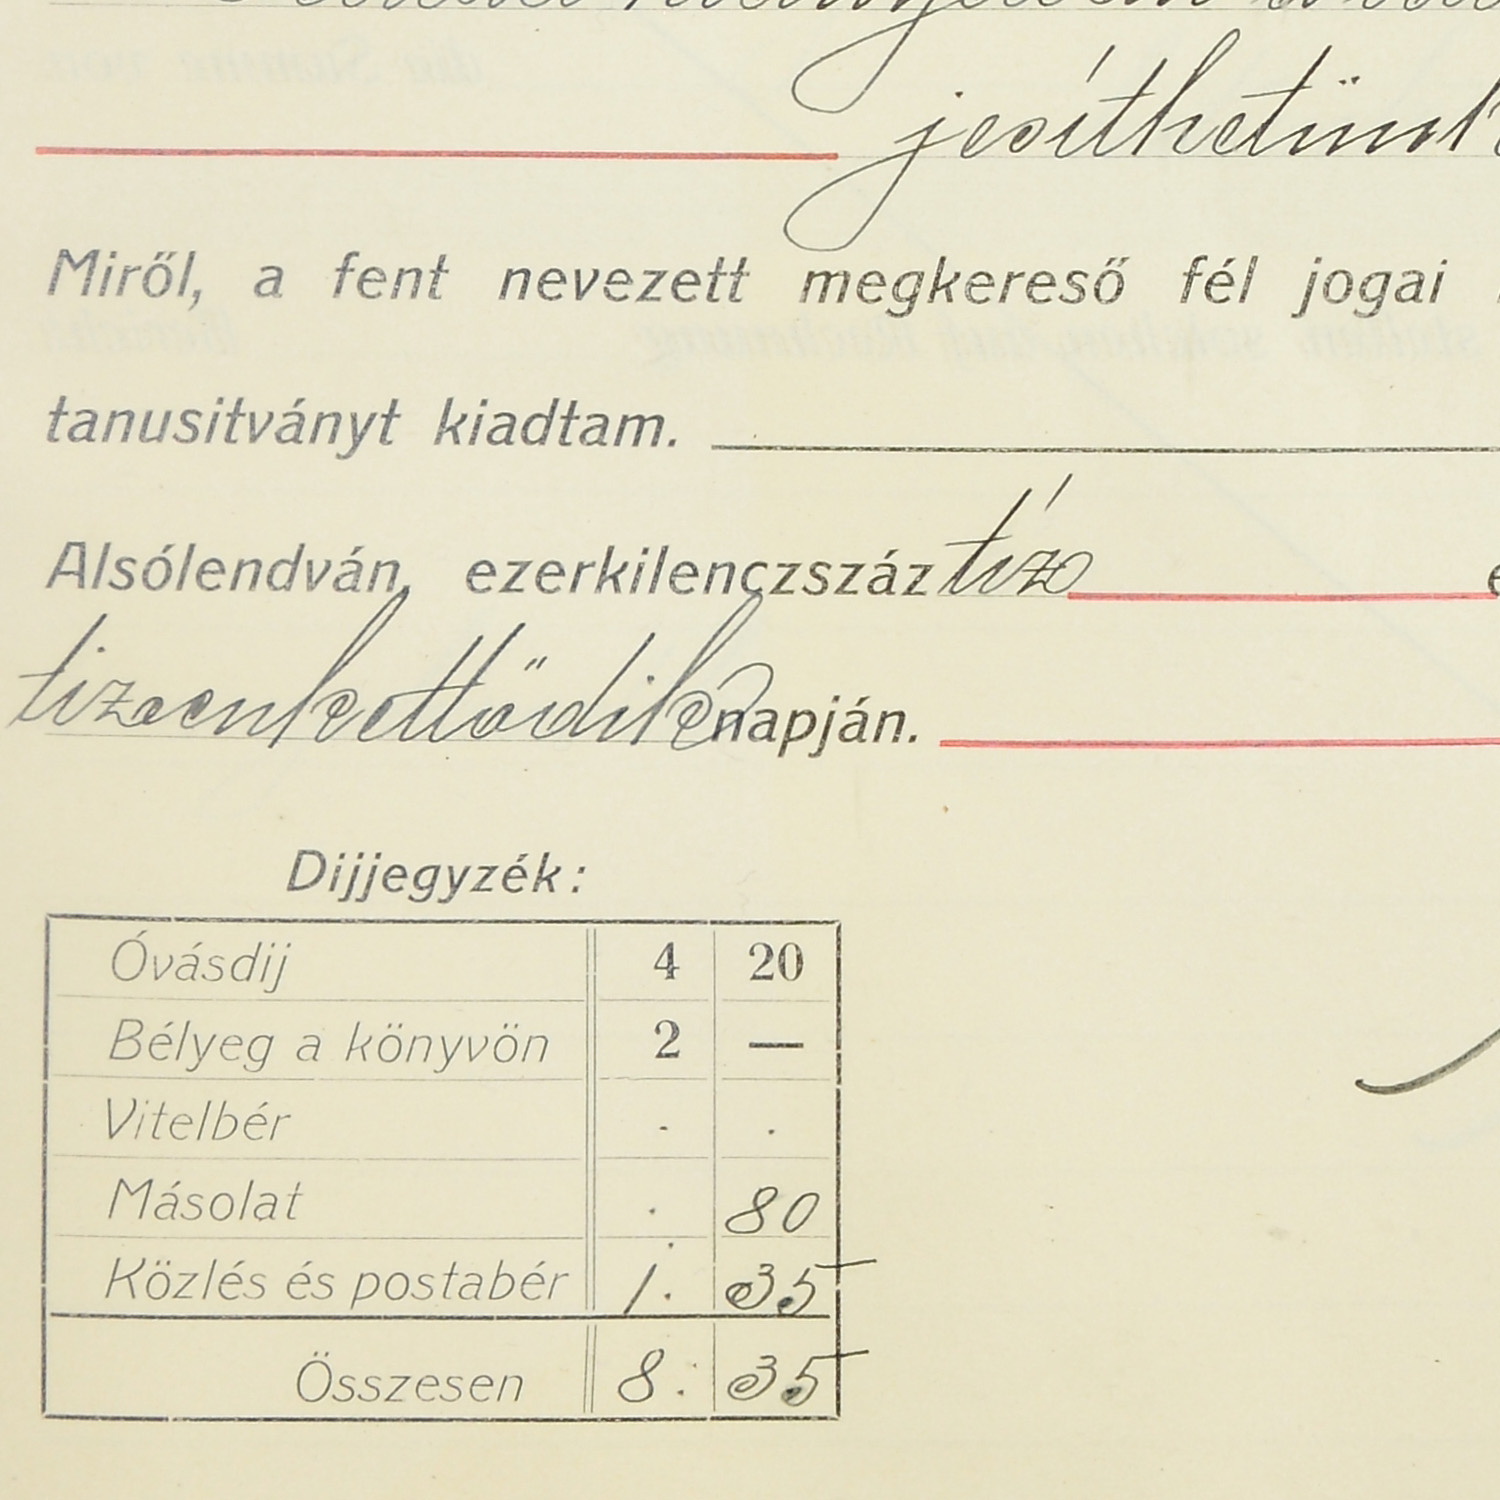 jesíthetünk
Miről, a fent nevezett megkereső fél jogai
tanusitványt kiadtam.
Alsólendván, ezerkilenczszáz tíz
tizenkettődik napján.
Dijjegyzék:
Óvásdij 4 20
Bélyeg a könyvön 2 —
Vitelbér . .
Másolat . 80
Közlés és postabér 1. 35
Összesen 8. 35